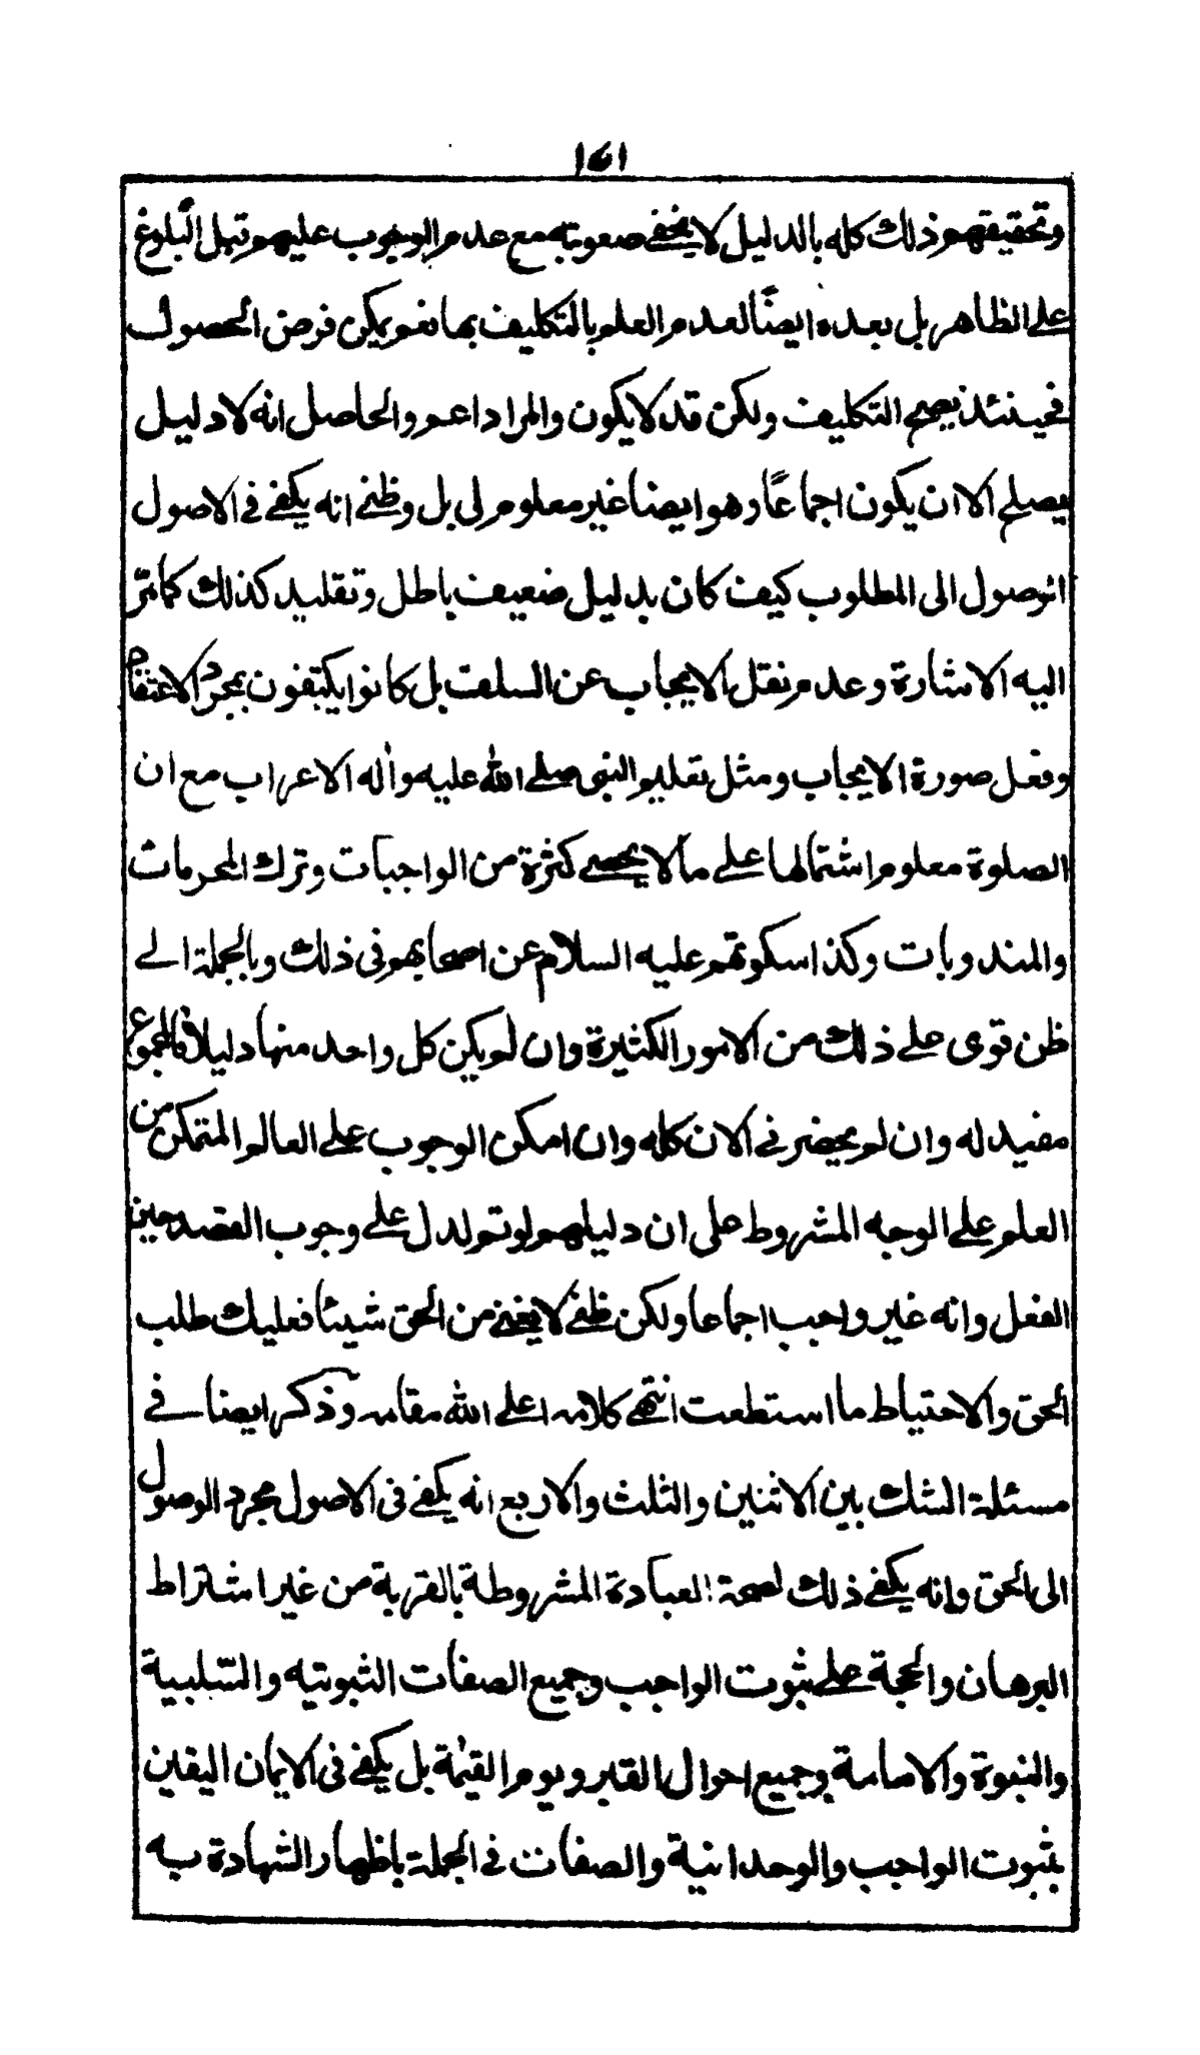 ١٥١
وتحقيقهم ذلك كله بالدليل لا يخفى صعوبته مع عدم الوجوب عليهم قبل البلوغ
على الظاهر بل بعده ايضًا لعدم العلم بالتكليف بها نعم يمكن فرض الحصول
فحينئذ يصح التكليف ولكن قد لا يكون والمراد اعم والحاصل انه لا دليل
يصلح الا ان يكون اجماعًا وهو ايضا غير معلوم لى بل وظنى انه يكفى فى الاصول
الوصول الى المطلوب كيف كان بدليل ضعيف باطل وتقليد كذلك كما مرّ
اليه الاشارة وعدم نقل الايجاب عن السلف بل كانوا يكتفون بمجرد الاعتقاد
وفعل صورة الايجاب ومثل تعليم النبى صلى الله عليه واله الاعراب مع ان
الصلوة معلوم اشتمالها على ما لا يحصى كثرة من الواجبات وترك المحرمات
والمندوبات وكذا سكوتهم عليه السلام عن اصحابهم فى ذلك وبالجملة الى
ظن قوى على ذلك من الامور الكثيرة وان لم يكن كل واحد منها دليلا فالمجموع
مفيد له وان لم يحضر نى الان كله وان امكن الوجوب على العالم المتمكن من
العلم على الوجه المشروط على ان دليلهم لو تم لدل على وجوب القصد حين
الفعل وانه غير واجب اجماعا ولكن ظنى لا يغنى من الحق شيئا فعليك طلب
الحق والاحتياط ما استطعت انتهى كلامه اعلى الله مقامه وذكر ايضا فى
مسئلة الشك بين الاثنين والثلث والاربع انه يكفى فى الاصول مجرد الوصول
الى الحق وانه يكفى ذلك لصحة العبادة المشروطة بالقربة من غير اشتراط
البرهان والحجة على ثبوت الواجب وجميع الصفات الثبوتيه والسّلبية
والنبوة والامامة وجميع احوال القبر ويوم القيٰمة بل يكفى فى الايمان اليقين
بثبوت الواجب والوحدانية والصفات فى الجملة باظهار الشهادة به